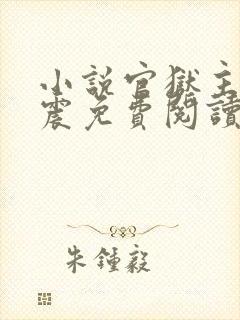 小說官獄主
震免費閱讀
朱鍾毅